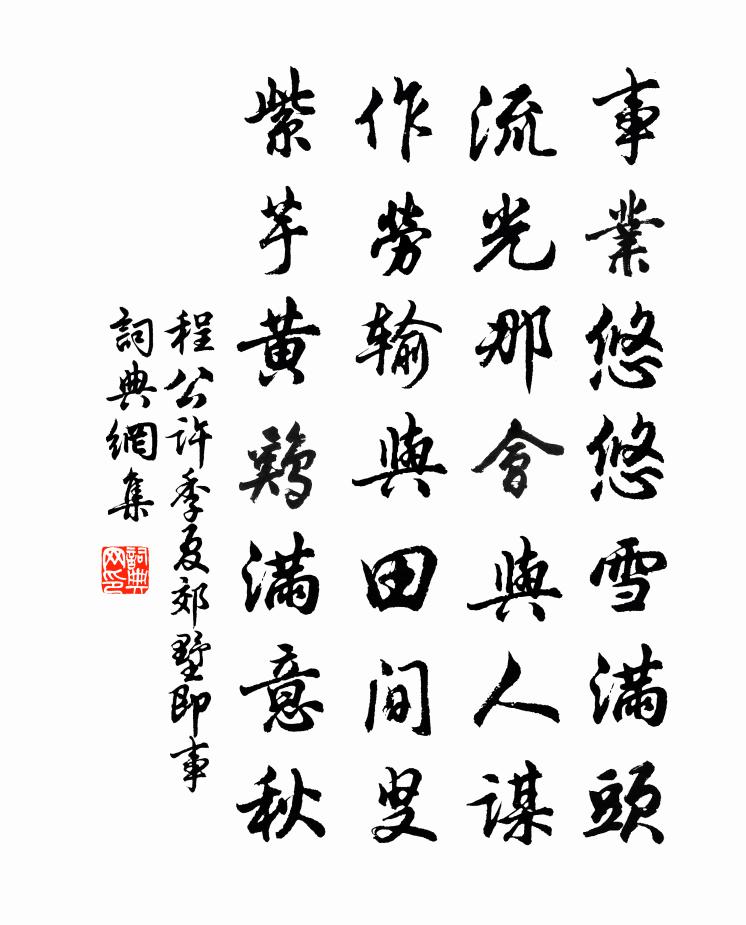 事業悠悠雪滿頭
流光那會與人謀
作勞輸與田間叟
紫芋黃鷄滿意秋
程公許季夏郊墅即事
詞典網集
詞典網印